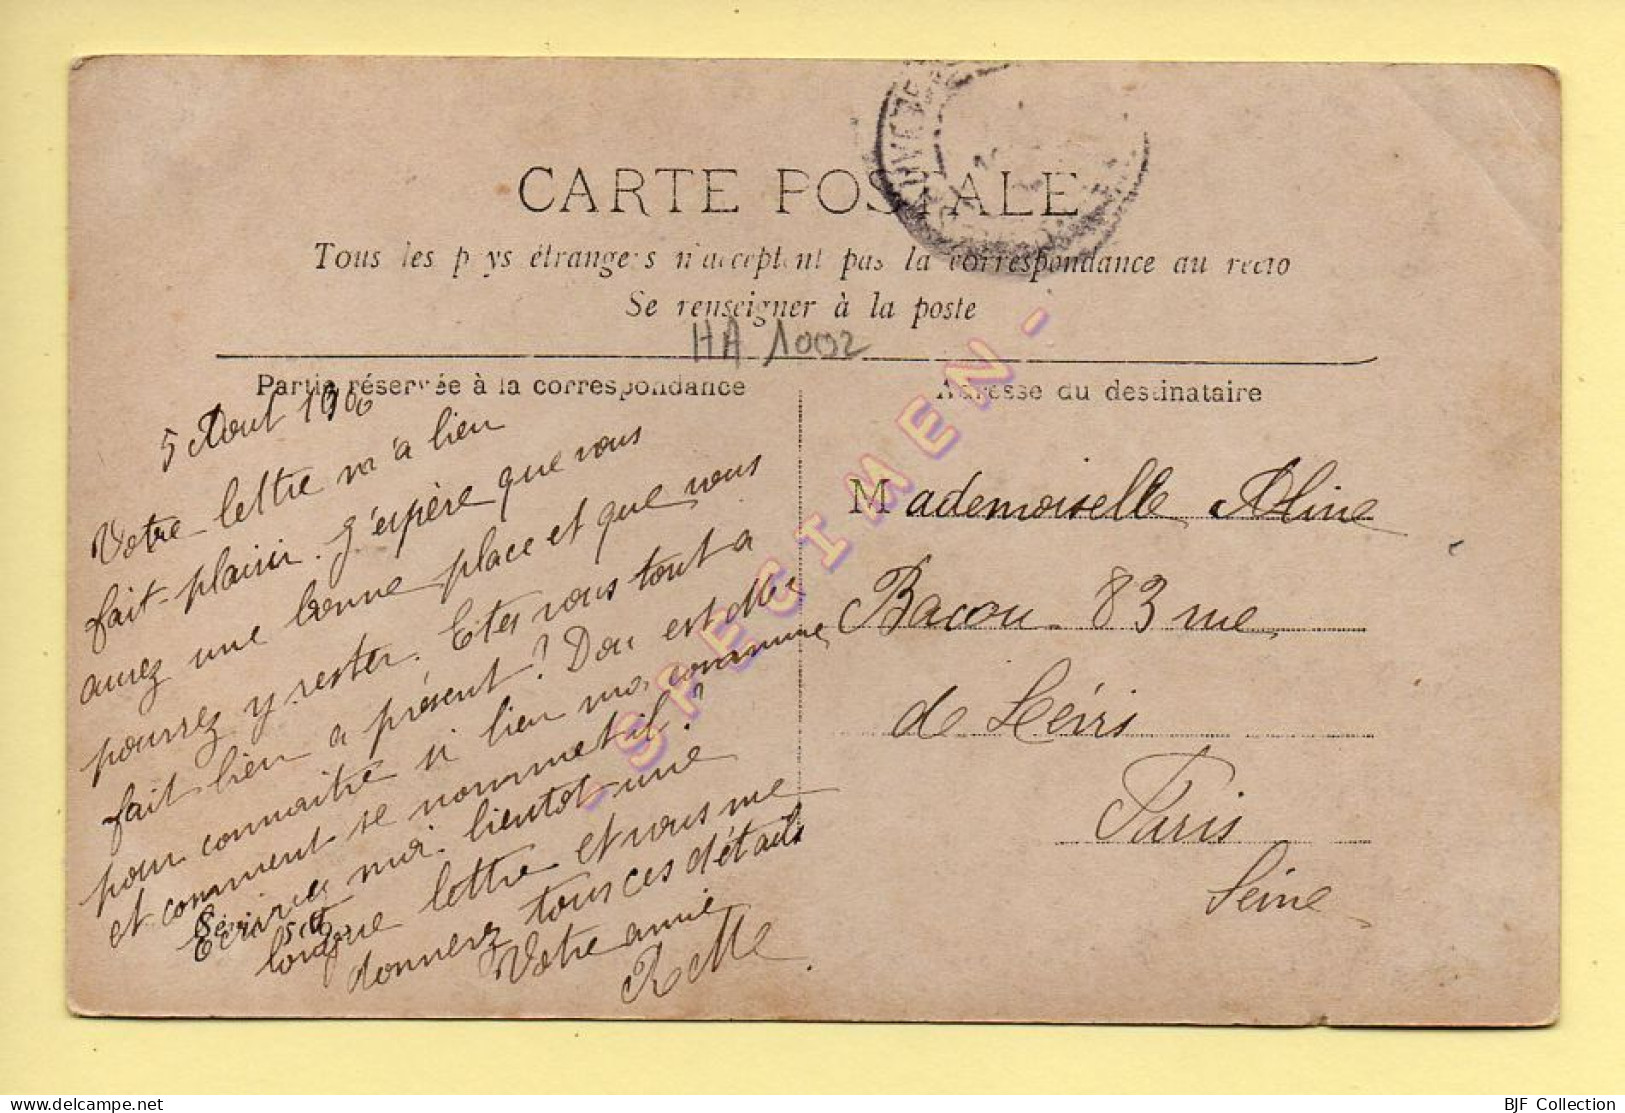 CARTE POSTALE
Tous les pays étrangers n'acceptent pas la correspondance au recto
Se renseigner à la poste
HA 1002
Partie réservée à la correspondance
5 Aout 1906
Votre lettre m'a bien
fait plaisir. J'espère que vous
aurez une bonne place et que vous
pourrez y rester. Etes vous tout a
fait bien a présent? Dou est Mlle
pour connaitre si bien ma commune,
et comment se nommet il?
Ecrivez moi bientot une
longue lettre et vous me
donnerez tous ces détails
Votre amie
R Mlle
Adresse du destinataire
Mademoiselle Aline
Bacou 83 rue
de Lévis
Paris
Seine
- SPECIMEN -
BJF Collection